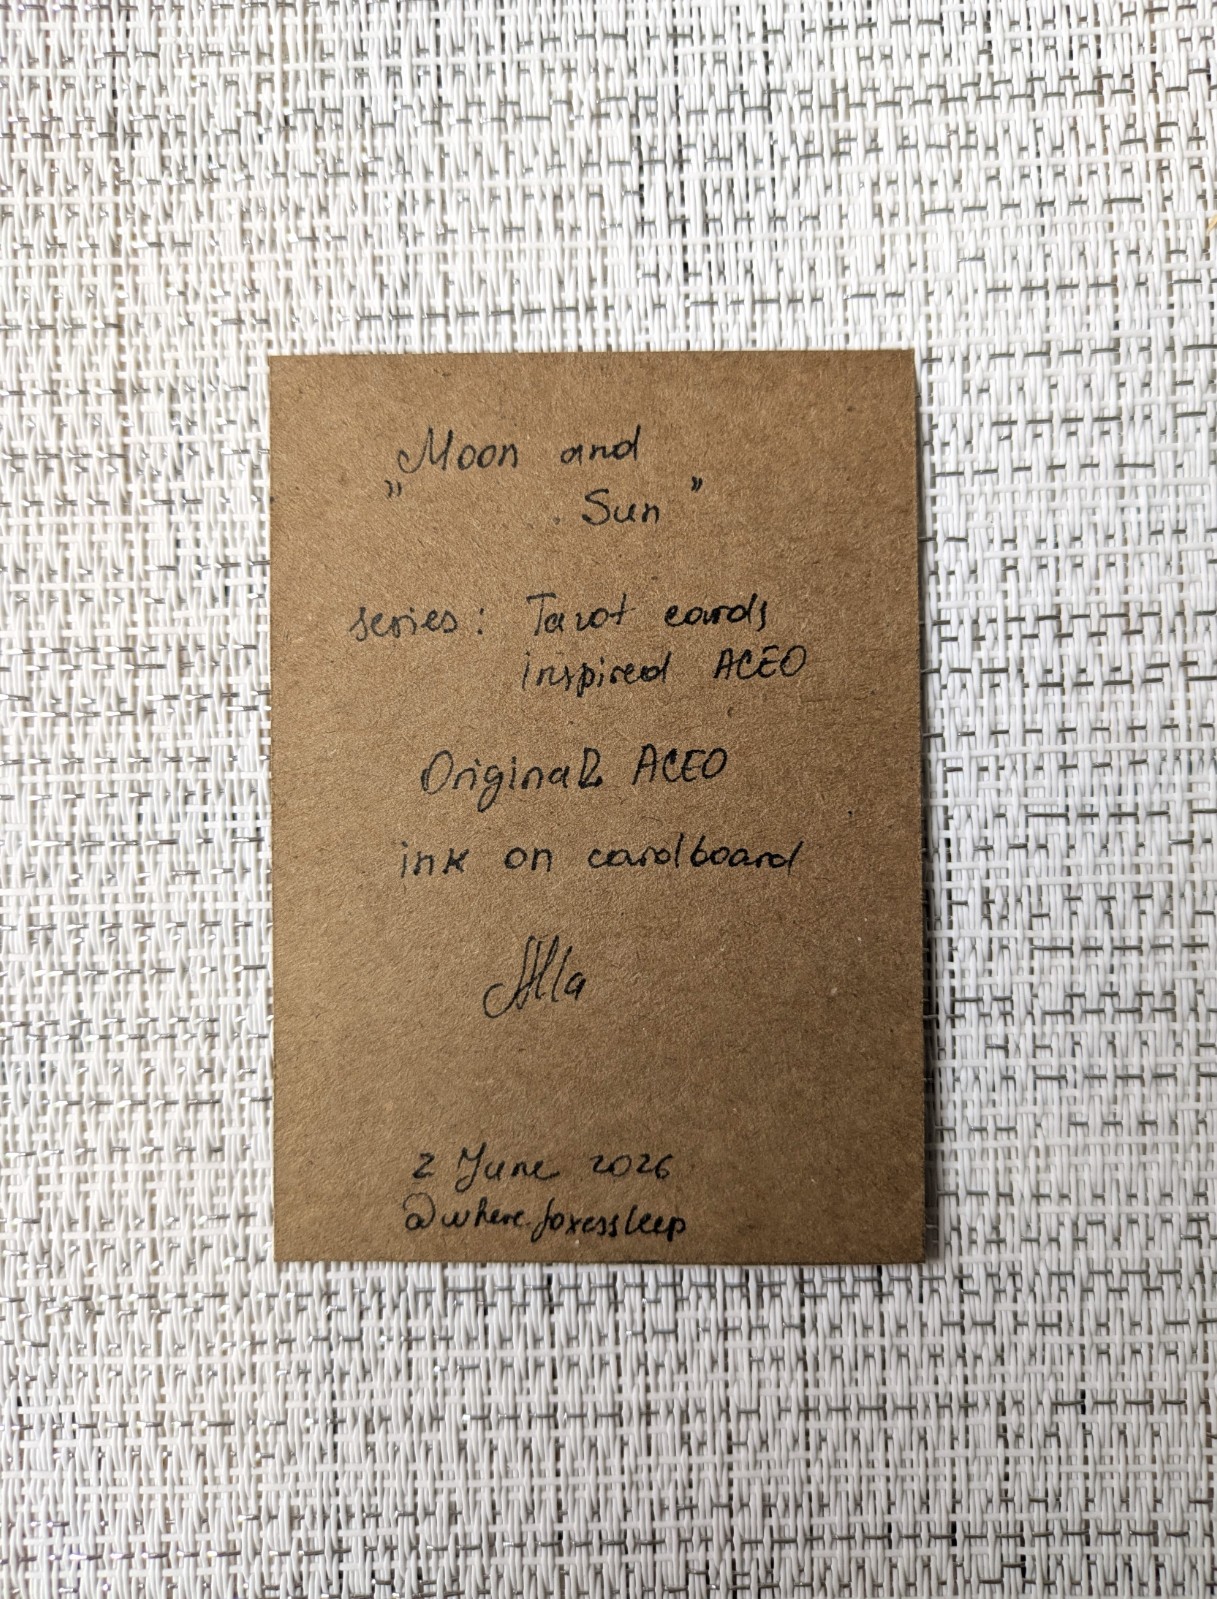 „Moon and
Sun"
series: Tarot cards
inspired ACEO
Original ACEO
ink on cardboard
Alla
2 June 2026
@where.foxessleep